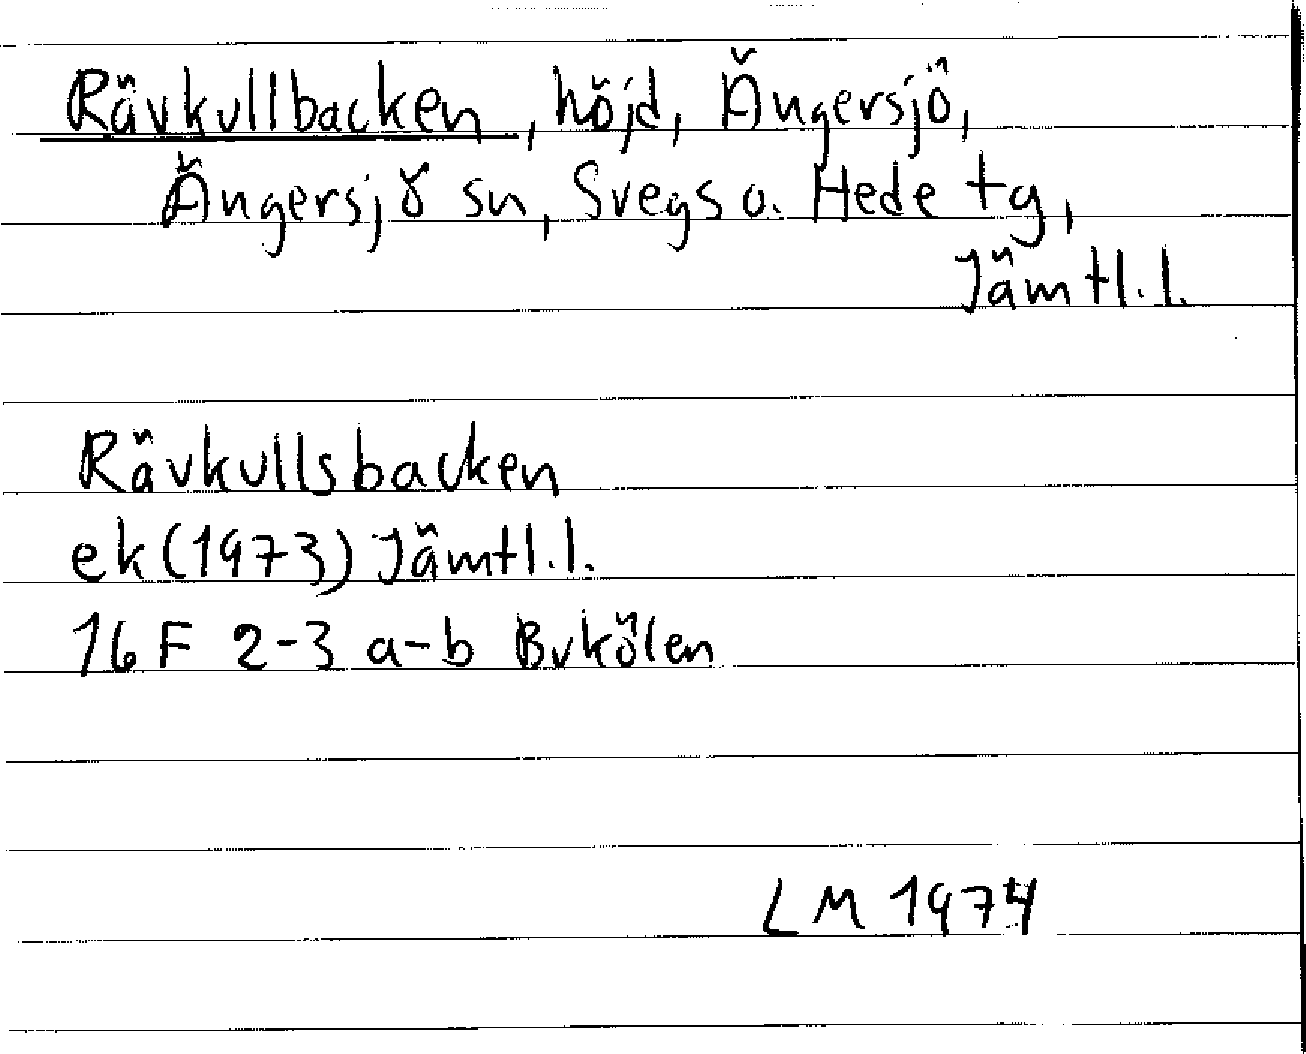 Rävkullbacken, höjd, Ängersjö,
Ängersjö sn, Svegs o. Hede tg,
Jämtl.l.
Rävkullsbacken
ek (1973) Jämtl.l.
16 F 2-3 a-b Burkölen
LM 1974